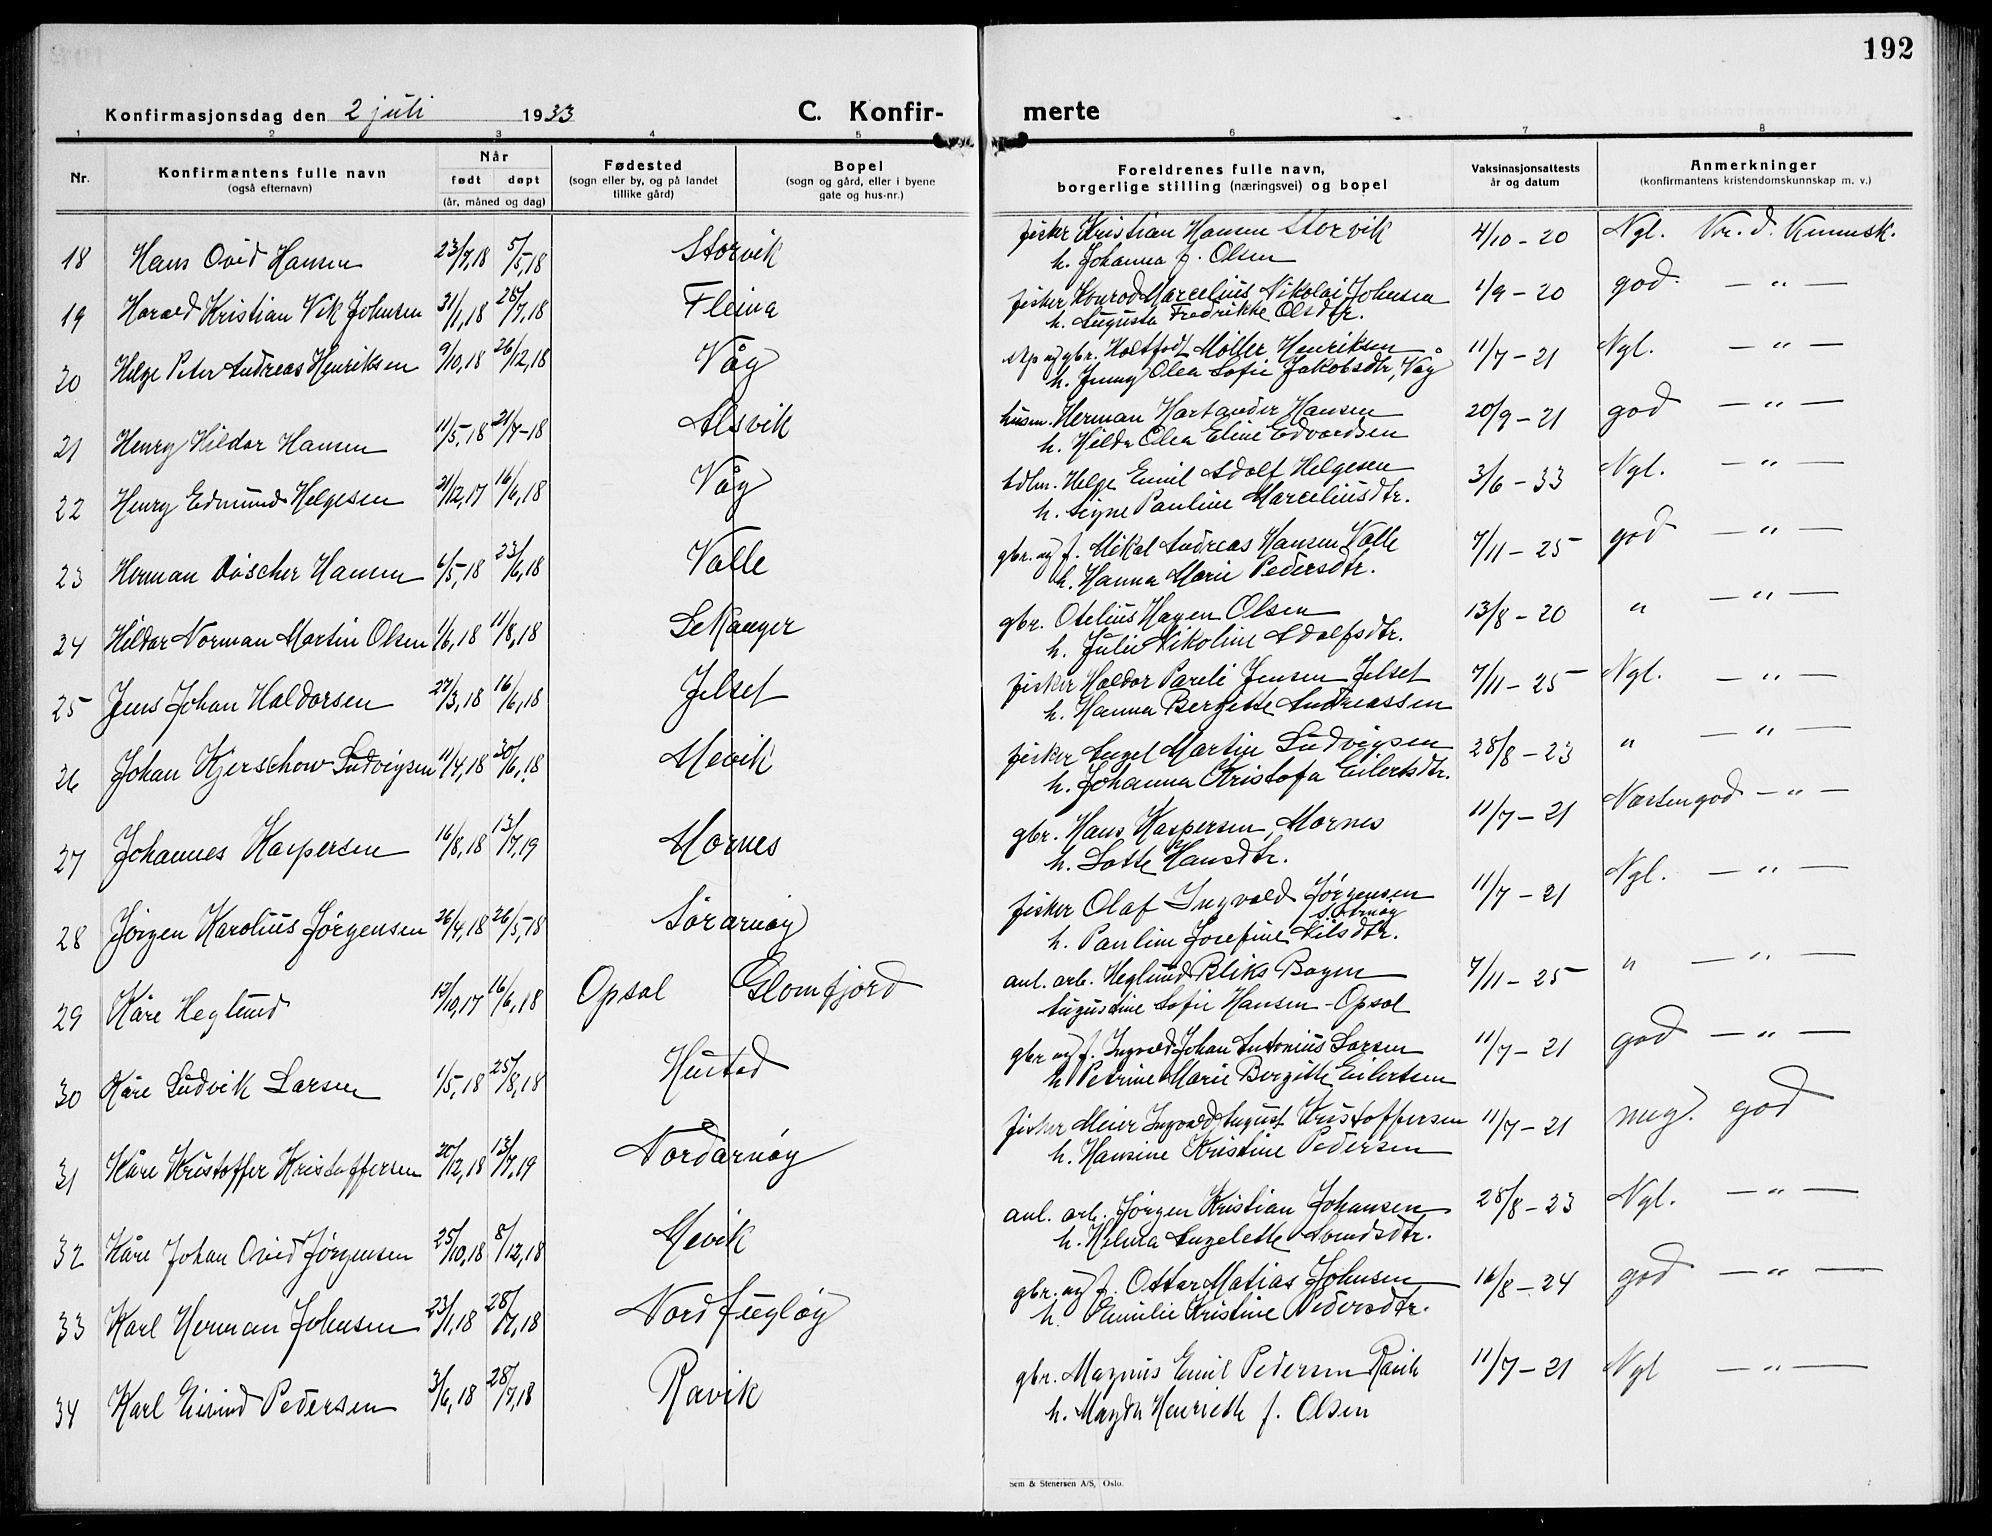 192
Konfirmasjonsdag den 2 juli 1933 C. Konfir- merte
1 2 3 4 5 6 7 8
Nr. Konfirmantens fulle navn (også efternavn) Når født døpt (år, måned og dag) Fødested (sogn eller by, og på landet tillike gård) Bopel (sogn og gård, eller i byene gate og hus-nr.) Foreldrenes fulle navn, borgerlige stilling (næringsvei) og bopel Vaksinasjonsattests år og datum Anmerkninger (konfirmantens kristendomskunnskap m. v.)
18 Hans Ovid Hansen 23/7,18 5/5,18 Storvik fisker Kristian Hansen Storvik 4/10-20 Ngl. Kr. d. Kunnsk.
h. Johanna f. Olsen
19 Harald Kristian Vik Johnsen 31/1,18 28/7,18 Fleina fisker Konrad Marcelius Nikolai Johnsen 1/9-20 god — " —
h. Augusta Fredrikke Olsdtr.
20 Helge Peter Andreas Henriksen 9/10,18 26/12,18 Våg gbr. Holtfodt Møller Henriksen 11/7-21 Ngl. — " —
h. Jenny Olea Sofie Jakobsdtr, Våg
21 Henry Hildor Hansen 11/5,18 21/7-18 Alsvik husm. Herman Hartander Hansen 20/9-21 god — " —
h. Hilda Olea Eline Edvardsen
22 Henry Edmund Helgesen 21/12,17 16/6,18 Våg Helge Emil Adolf Helgesen 3/6-33 Ngl. — " —
h. Signe Pauline Marceliusdtr.
23 Herman Døscher Hansen 6/5,18 23/6,18 Valle gbr. og f. Mikal Andreas Hansen Valle 7/11-25 god — " —
h. Hanna Marie Pedersdtr.
24 Hildor Norman Martin Olsen 1/6,18 11/8,18 Sekanger gbr. Otelius Hagen Olsen 13/8-20 " — " —
h. Julie Nikoline Adolfsdtr.
25 Jens Johan Haldorsen 27/3,18 16/6,18 Jelset fisker Haldor Pareli Jensen Jelset 7/11-25 Ngl. — " —
h. Hanna Bergitte Andreassen
26 Johan Kjerschow Ludvigsen 11/4,18 30/6,18 Mevik fisker Angel Martin Ludvigsen 28/8-23 " — " —
h. Johanna Kristofa Eilertsdtr.
27 Johannes Kaspersen 16/8,18 13/7,19 Mornes gbr. Hans Kaspersen, Mornes 11/7-21 Næsten god — " —
h. Lotte Hansdtr.
28 Jørgen Karolius Jørgensen 26/4,18 26/5,18 Sørarnøy fisker Olaf Ingvald Jørgensen 11/7-21 Ngl. — " —
h. Pauline Josefine Nilsdtr.
29 Kåre Heglund 12/10,17 16/6,18 Opsal Glomfjord anl. arb. Heglund Bliks Bagen 7/11-25 " — " —
Augustine Sofie Hansen - Opsal
30 Kåre Ludvik Larsen 1/5,18 25/8,18 Hustad gbr og f. Ingvald Johan Antonius Larsen 11/7-21 god — " —
h. Petrine Marie Bergitte Eilertsen
31 Kåre Kristoffer Kristoffersen 20/12,18 13/7,19 Nordarnøy fisker Meier Ingvald August Kristoffersen 11/7-21 meg. god
h. Hansine Kristine Pedersen
32 Kåre Johan Ovid Jørgensen 25/10,18 8/12,18 Mevik anl. arb. Jørgen Kristian Johansen 28/8-23 Ngl. — " —
h. Helma Angelette Arndsdtr.
33 Karl Herman Johnsen 23/1,18 28/7,18 Nordfugløy gbr. og f. Ottar Matias Johnsen 16/8-24 god — " —
h. Emilie Kristine Pedersdtr.
34 Karl Eivind Pedersen 3/6,18 28/7,18 Ravik gbr. Magnus Emil Pedersen Ravik 11/7-21 Ngl — " —
h. Magda Henriette f. Olsen
Sem & Stenersen A/S, Oslo.